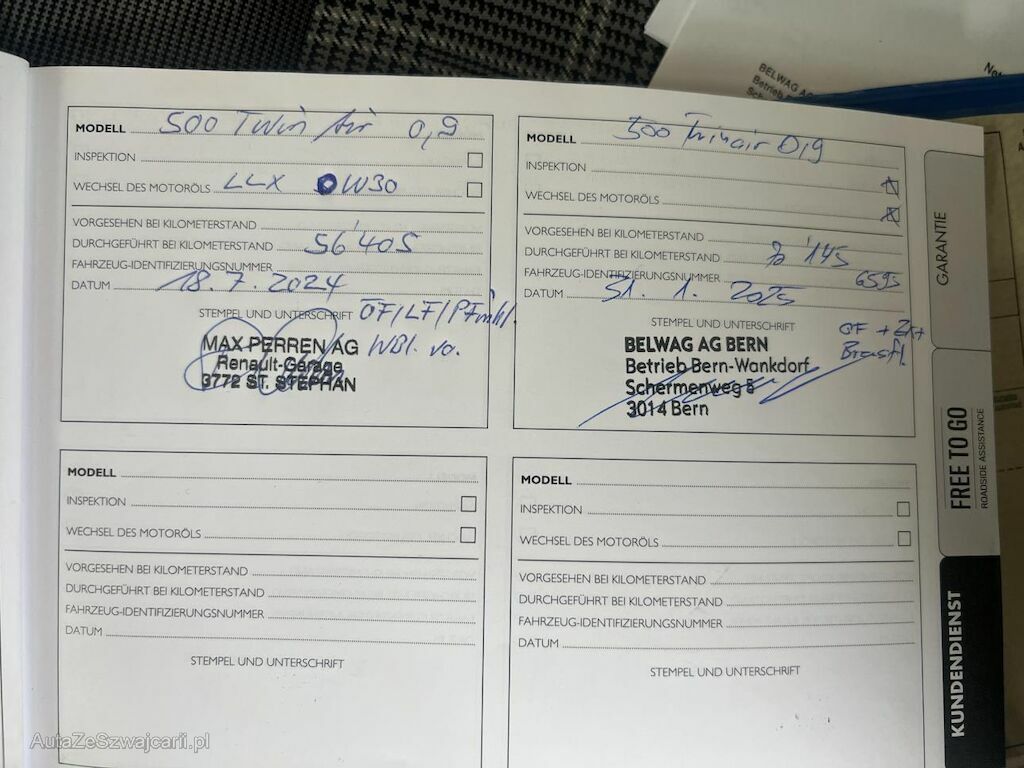 BELWAG AG
Betrieb
MODELL 500 Twin Air 0,9
INSPEKTION
WECHSEL DES MOTORÖLS LLX 0W30
VORGESEHEN BEI KILOMETERSTAND
DURCHGEFÜHRT BEI KILOMETERSTAND 56'405
FAHRZEUG-IDENTIFIZIERUNGSNUMMER
DATUM 18.7.2024
STEMPEL UND UNTERSCHRIFT ÖF/LF/PF
WBl.
MAX PERREN AG
Renault-Garage
3772 ST. STEPHAN
MODELL 500 Twinair 0,9
INSPEKTION
WECHSEL DES MOTORÖLS
VORGESEHEN BEI KILOMETERSTAND
DURCHGEFÜHRT BEI KILOMETERSTAND
FAHRZEUG-IDENTIFIZIERUNGSNUMMER 6595
DATUM 31. 1. 2025
STEMPEL UND UNTERSCHRIFT
BELWAG AG BERN
Betrieb Bern-Wankdorf
Schermenweg 5
3014 Bern
MODELL
INSPEKTION
WECHSEL DES MOTORÖLS
VORGESEHEN BEI KILOMETERSTAND
DURCHGEFÜHRT BEI KILOMETERSTAND
FAHRZEUG-IDENTIFIZIERUNGSNUMMER
DATUM
STEMPEL UND UNTERSCHRIFT
MODELL
INSPEKTION
WECHSEL DES MOTORÖLS
VORGESEHEN BEI KILOMETERSTAND
DURCHGEFÜHRT BEI KILOMETERSTAND
FAHRZEUG-IDENTIFIZIERUNGSNUMMER
DATUM
STEMPEL UND UNTERSCHRIFT
GARANTIE
FREE TO GO
ROADSIDE ASSISTANCE
KUNDENDIENST
AutaZeSzwajcarii.pl